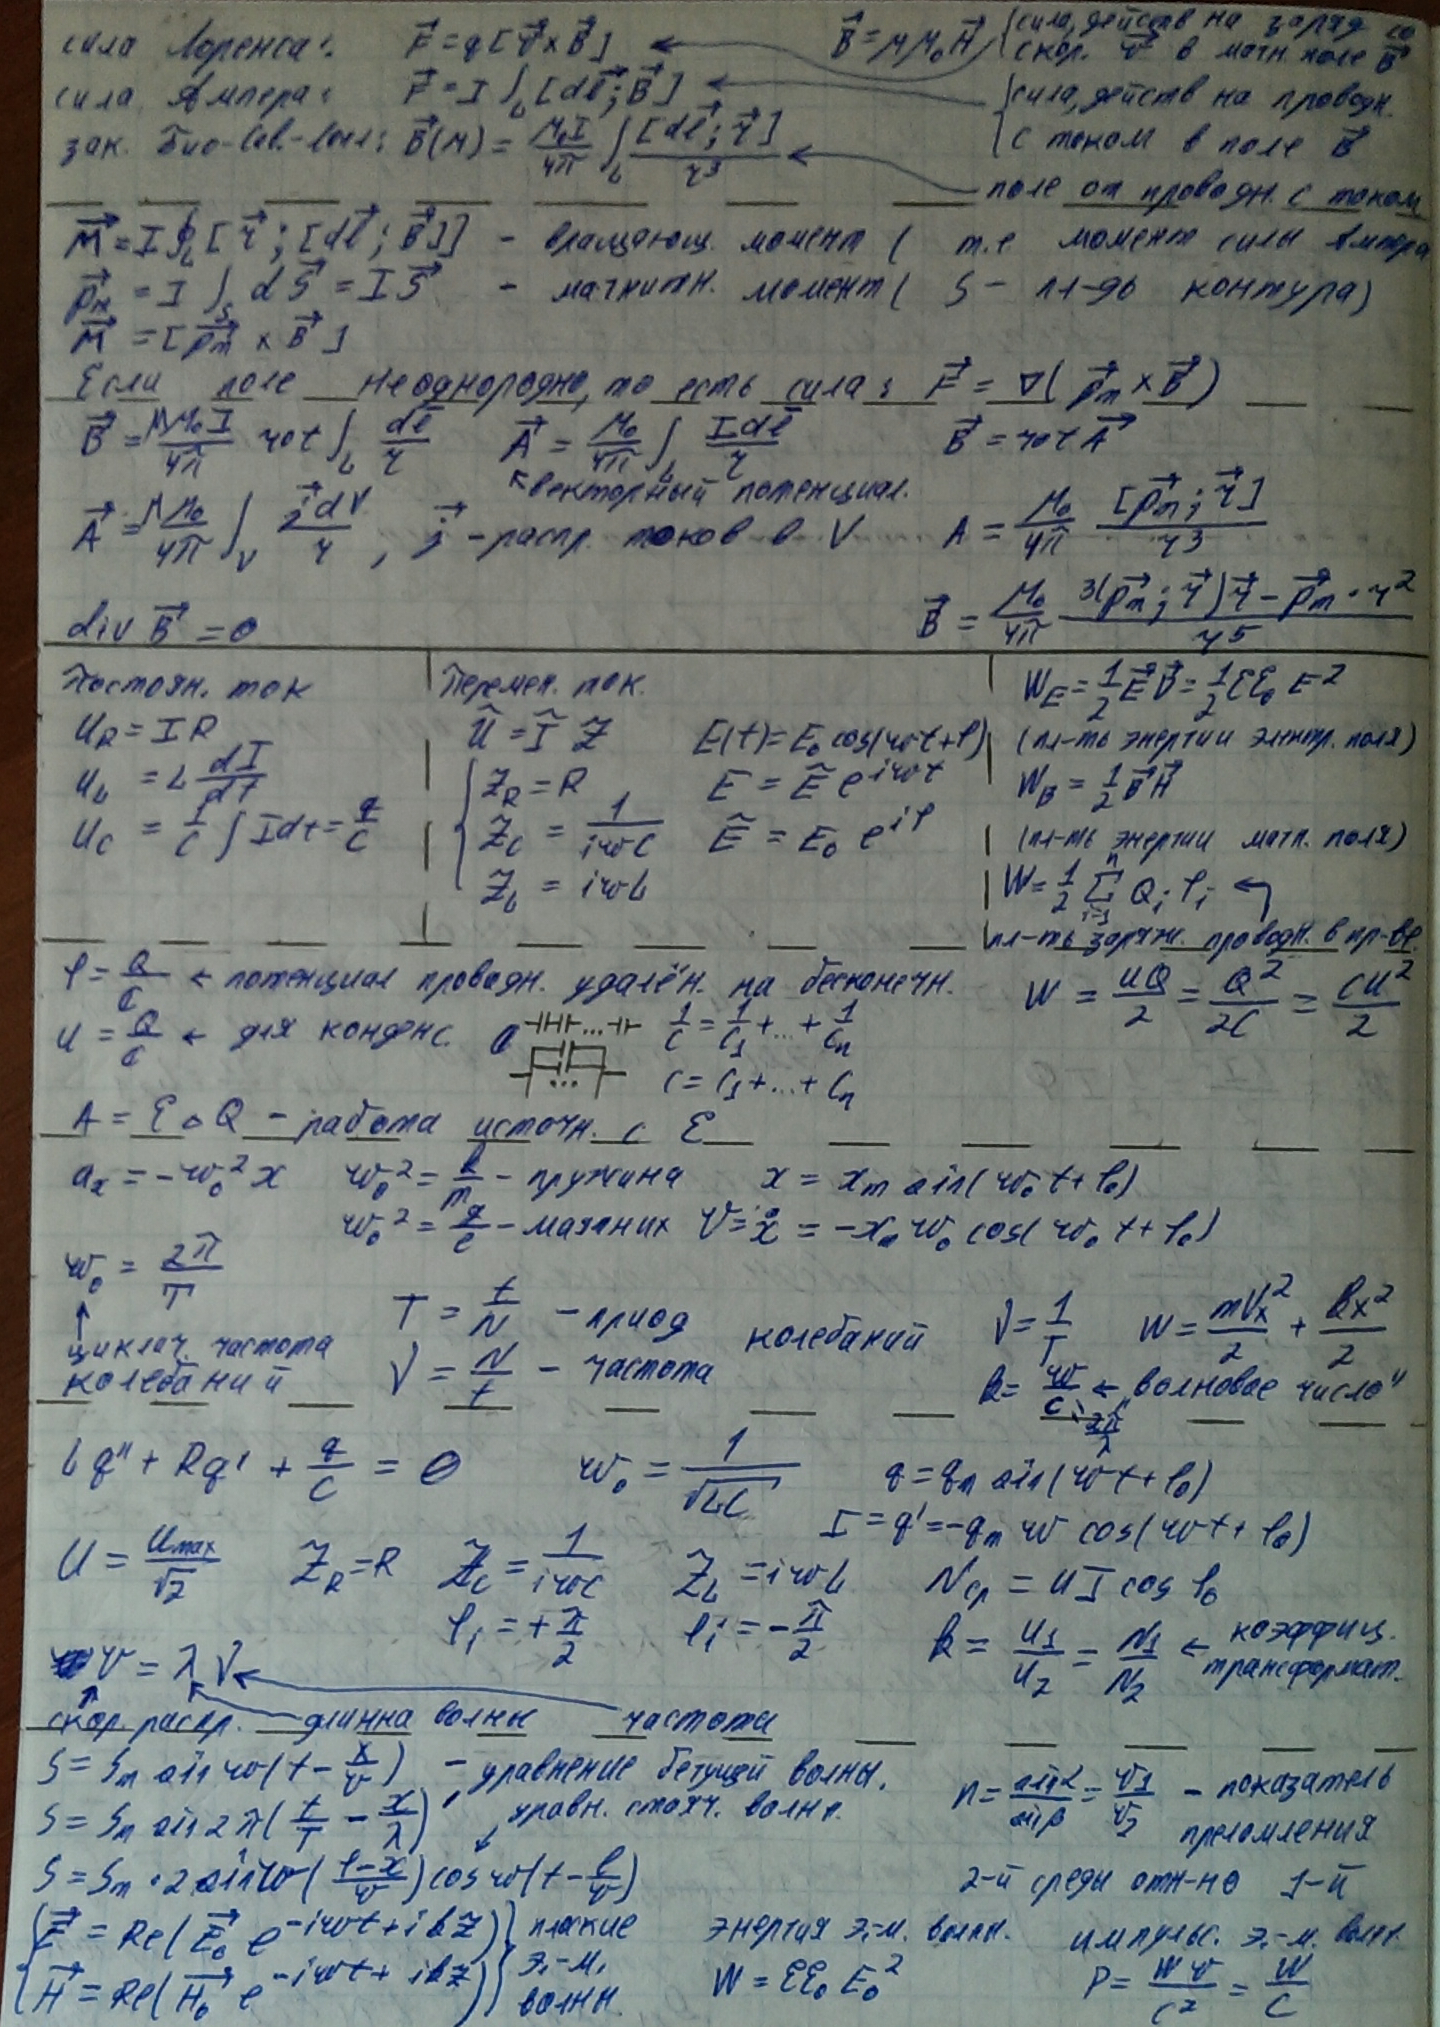 сила Лоренса: F⃗ = q[v⃗ × B⃗]   B⃗ = μμ₀H⃗   сила, действ на заряд со
скор. v⃗ в магн. поле B⃗
сила Ампера: F⃗ = I ∫_L [dl⃗; B⃗]   сила, действ на проводн.
с током в поле B⃗
зак. Био-Сав.-Лапл: B⃗(M) = μ₀I/4π ∫_L [dl⃗; r⃗]/r³
поле от проводн. с током
M⃗ = I ∮_L [r⃗; [dl⃗; B⃗]] - вращающ. момент (т.е момент силы Ампера
p⃗m = I ∫_S dS⃗ = IS⃗ - магнитн. момент (S - пл-дь контура)
M⃗ = [p⃗m × B⃗]
Если поле неоднородно, то есть сила: F⃗ = ∇(p⃗m × B⃗)
B⃗ = μμ₀I/4π rot ∫_L dl⃗/r   A⃗ = μ₀/4π ∫_L Idl⃗/r   B⃗ = rot A⃗
↖ векторный потенциал.
A⃗ = μμ₀/4π ∫_V j⃗dV/r, j⃗ - распр. токов в V   A = μ₀/4π [p⃗m; r⃗]/r³
div B⃗ = 0   B⃗ = μ₀/4π (3(p⃗m; r⃗)r⃗ - p⃗m · r²)/r⁵
Постоян. ток
U_R = IR
U_L = L dI/dt
U_C = 1/C ∫ Idt = q/C
Перемен. ток.
Ũ = Ĩ Z̃   E(t) = E₀ cos(ωt+φ)
Z̃_R = R   E = Ẽ e^{iωt}
Z̃_C = 1/iωC   Ẽ = E₀ e^{iφ}
Z̃_L = iωL
W_E = 1/2 E⃗D⃗ = 1/2 εε₀ E²
(пл-ть энергии электр. поля)
W_B = 1/2 B⃗H⃗
(пл-ть энергии магн. поля)
W = 1/2 Σ_{i=1}^n Q_i φ_i ←
пл-ть заряж. проводн. в пр-ве
φ = Q/C ← потенциал проводн. удалён. на бесконечн.   W = UQ/2 = Q²/2C = CU²/2
U = Q/C ← для конденс.   1/C = 1/C₁ + ... + 1/Cn
C = C₁ + ... + Cn
A = ℰ△Q - работа источн. с ℰ
a_x = -ω₀²x   ω₀² = k/m - пружина   x = x_m sin(ω₀t+φ₀)
ω₀² = g/ℓ - маятник   V = ẋ = -x_m ω₀ cos(ω₀t+φ₀)
ω₀ = 2π/T
↑
циклич. частота
колебаний
T = t/N -приод   колебаний   ν = 1/T   W = mVx²/2 + kx²/2
ν = N/t - частота   k = ω/c ← "волновое число"
= 2π/λ
Lq'' + Rq' + q/C = 0   ω₀ = 1/√LC   q = q_m sin(ωt+φ₀)
I = q' = -q_m ω cos(ωt+φ₀)
U = U_max/√2   Z̃_R = R   Z̃_C = 1/iωC   Z̃_L = iωL   N_ср = UI cos φ₀
φ_i = +π/2   φ_i = -π/2   k = U₁/U₂ = N₁/N₂ ← коэффиц.
трансформат.
v = λν
скор. распр.   длинна волны   частота
S = S_m sin ω(t - x/v) - уравнение бегущей волны,
S = S_m sin 2π(t/T - x/λ),   уравн. стояч. волны.
S = S_m · 2 sin ω((l-x)/v) cos ω(t - l/v)
n = sinα/sinβ = v₁/v₂ - показатель
преломления
2-й среды отн-но 1-й
E⃗ = Re(E⃗₀ e^{-iωt+ikz})
H⃗ = Re(H⃗₀ e^{-iωt+ikz})
плоские
э.-м.
волны.
энергия э.-м. волн.
W = εε₀ E₀²
импульс. э.-м. волн.
P = Wv/c² = W/c